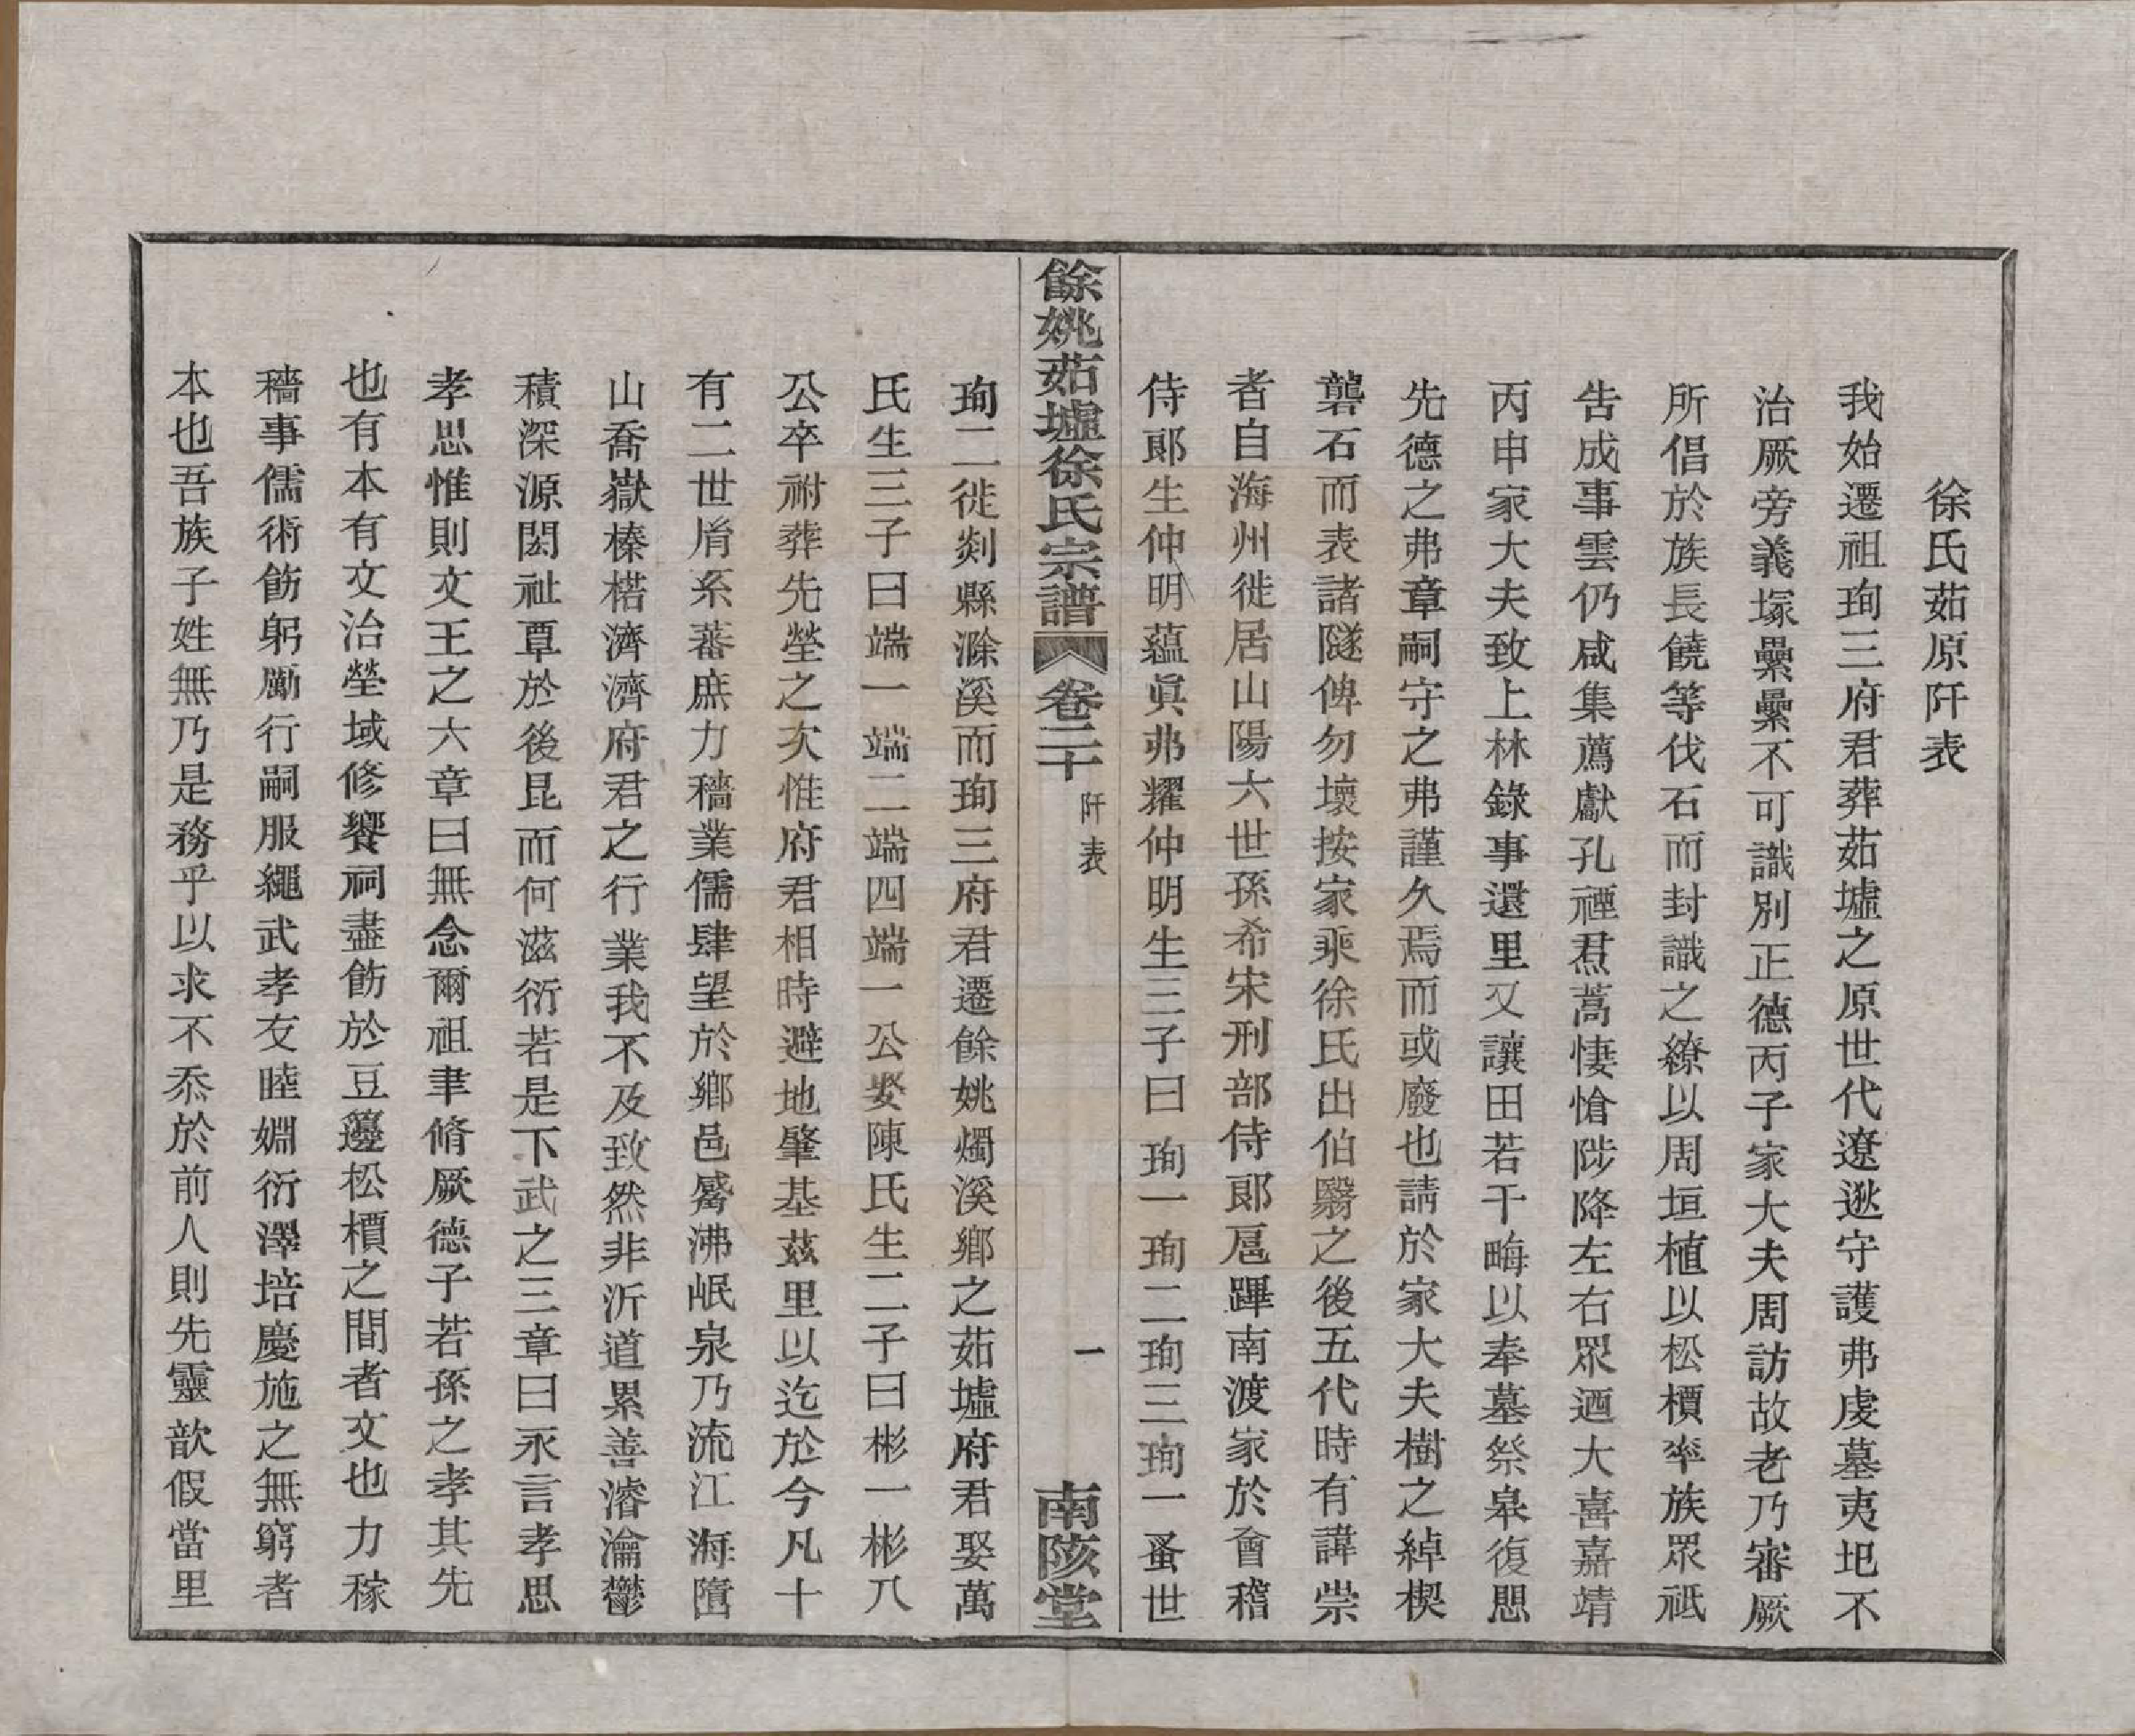 徐氏茹原阡表
我始遷祖珣三府君葬茹墟之原世代遼逖守護弗虔墓夷圯不
治厥旁義塚纍纍不可識別正德丙子家大夫周訪故老乃審厥
所倡於族長饒等伐石而封識之繚以周垣植以松檟率族眾祗
告成事雲仍咸集薦獻孔禋焄蒿悽愴陟降左右眾迺大喜嘉靖
丙申家大夫致上林錄事還里又讓田若干畮以奉墓祭皋復思
先德之弗章嗣守之弗謹久焉而或廢也請於家大夫樹之綽楔
礱石而表諸隧俾勿壞按家乘徐氏出伯翳之後五代時有諱崇
者自海州徙居山陽六世孫希宋刑部侍郞扈蹕南渡家於會稽
侍郞生仲明蘊眞弗耀仲明生三子曰珣一珣二珣三珣一蚤世
餘姚茹墟徐氏宗譜 卷二十 阡表 一 南陔堂
珣二徙剡縣滁溪而珣三府君遷餘姚燭溪鄉之茹墟府君娶萬
氏生三子曰端一端二端四端一公娶陳氏生二子曰彬一彬八
公卒祔葬先塋之次惟府君相時避地肇基茲里以迄於今凡十
有二世胤系蕃庶力穡業儒肆望於鄉邑觱沸岷泉乃流江海嶞
山喬嶽榛楛濟濟府君之行業我不及致然非沂道累善濬瀹鬱
積深源閎祉覃於後昆而何滋衍若是下武之三章曰永言孝思
孝思惟則文王之六章曰無念爾祖聿脩厥德子若孫之孝其先
也有本有文治塋域修饗祠盡飭於豆籩松檟之間者文也力稼
穡事儒術飭躬勵行嗣服繩武孝友睦婣衍澤培慶施之無窮者
本也吾族子姓無乃是務乎以求不忝於前人則先靈歆假當里